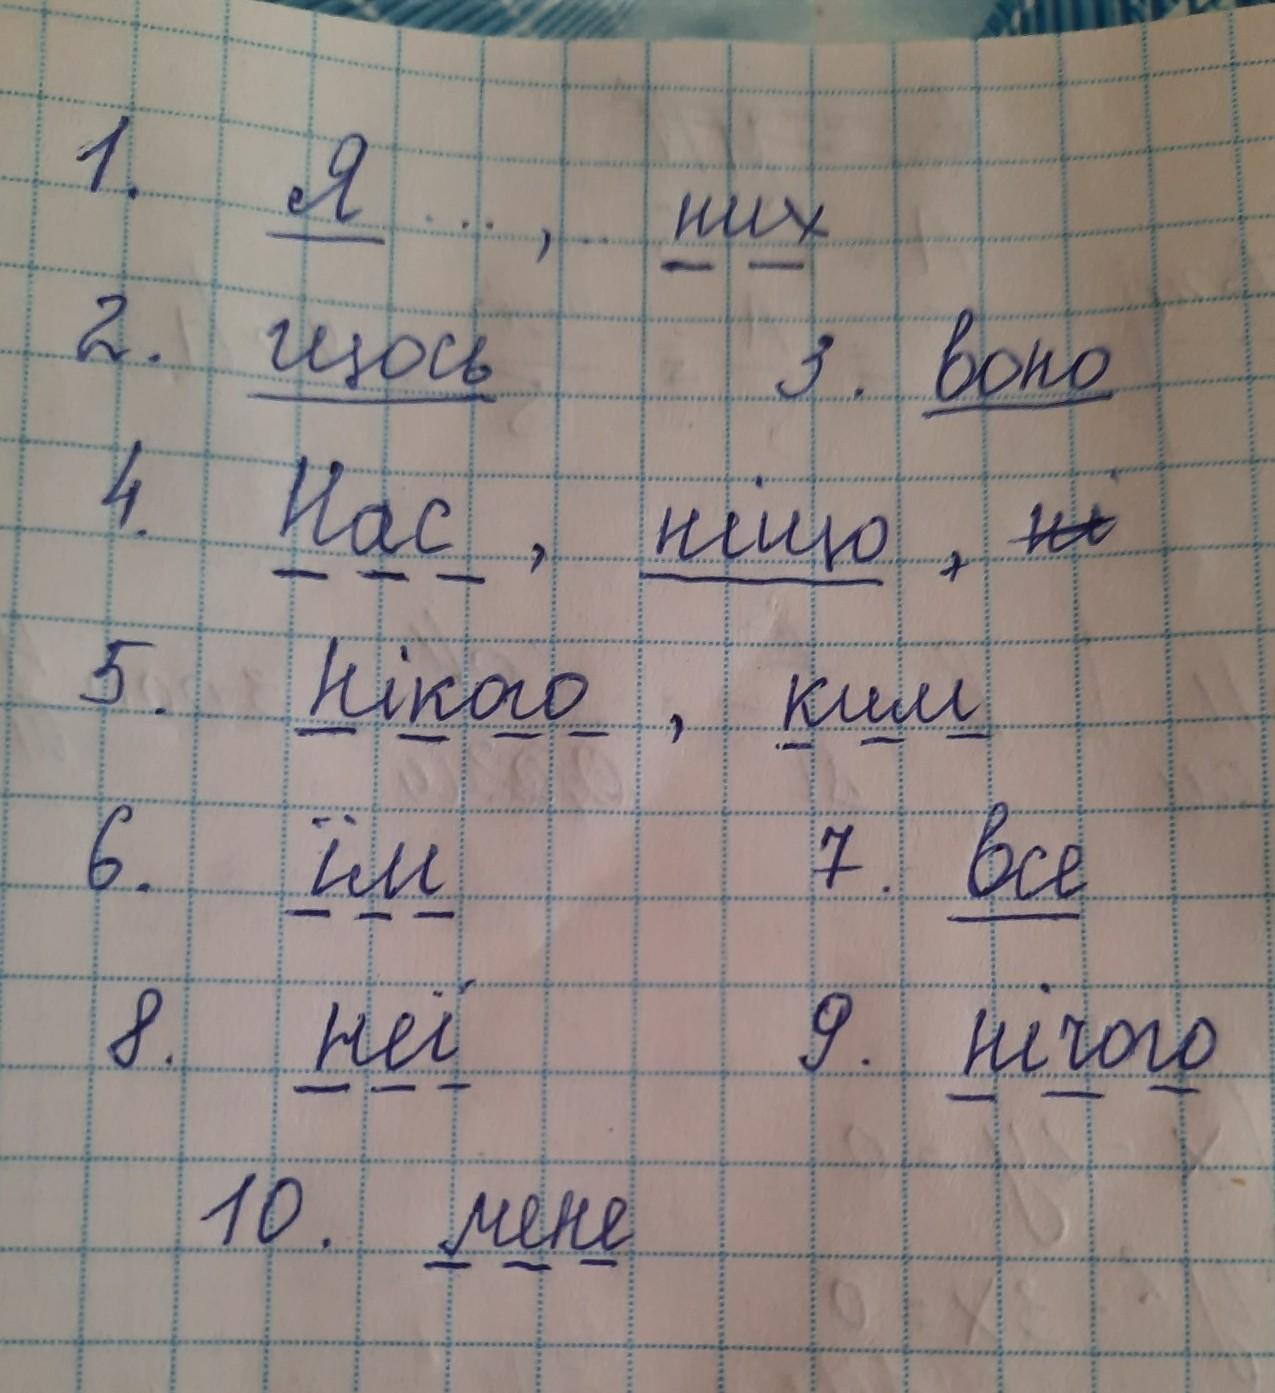 1. Я ... , .. них
2. щось 3. воно
4. Нас , ніщо , ні
5. Нікого , ким
6. їм 7. все
8. неї 9. нічого
10. мене